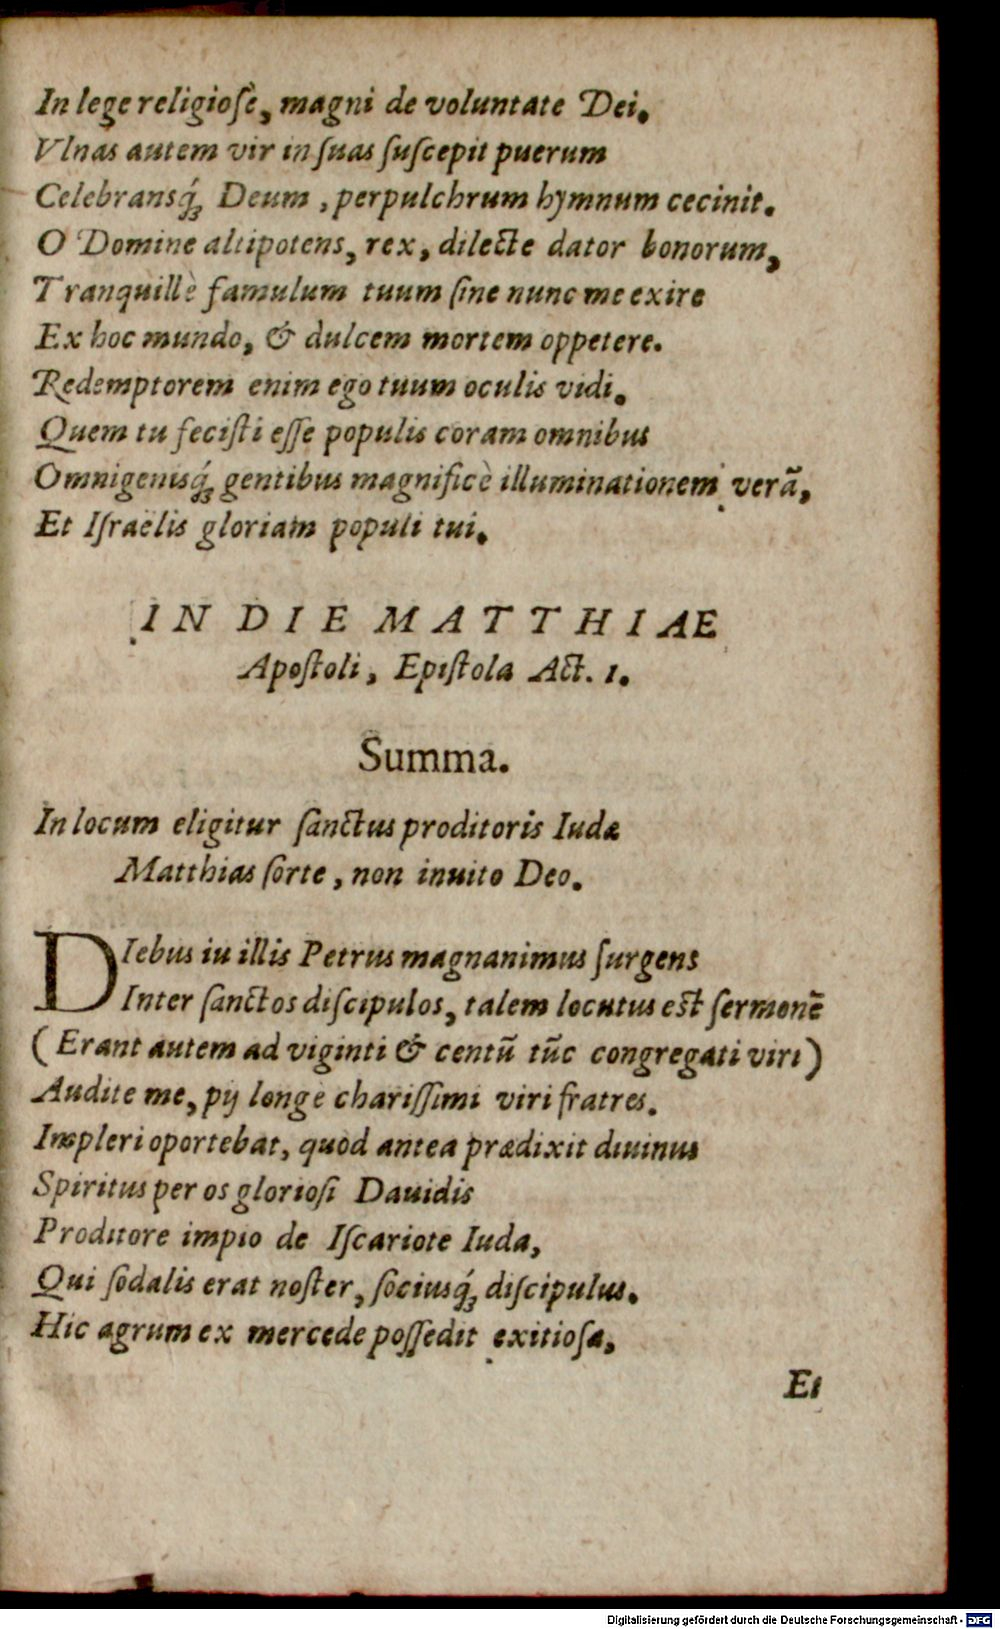 In lege religiosè, magni de voluntate Dei.
Vlnas autem vir in suas suscepit puerum
Celebransq́ꝫ Deum, perpulchrum hymnum cecinit.
O Domine altipotens, rex, dilecte dator bonorum,
Tranquillè famulum tuum sine nunc me exire
Ex hoc mundo, & dulcem mortem oppetere.
Redemptorem enim ego tuum oculis vidi.
Quem tu fecisti esse populis coram omnibus
Omnigenisq́ꝫ gentibus magnificè illuminationem verã,
Et Israëlis gloriam populi tui.
IN DIE MATTHIAE
Apostoli, Epistola Act. 1.
Summa.
In locum eligitur sanctus proditoris Iudæ
Matthias sorte, non inuito Deo.
DIebus iu illis Petrus magnanimus surgens
Inter sanctos discipulos, talem locutus est sermonẽ
(Erant autem ad viginti & centũ tũc congregati viri)
Audite me, pij longè charissimi viri fratres.
Impleri oportebat, quod antea prædixit diuinus
Spiritus per os gloriosi Dauidis
Proditore impio de Iscariote Iuda,
Qui sodalis erat noster, sociusq́ꝫ discipulus.
Hic agrum ex mercede possedit exitiosa,
Et
Digitalisierung gefördert durch die Deutsche Forschungsgemeinschaft - DFG